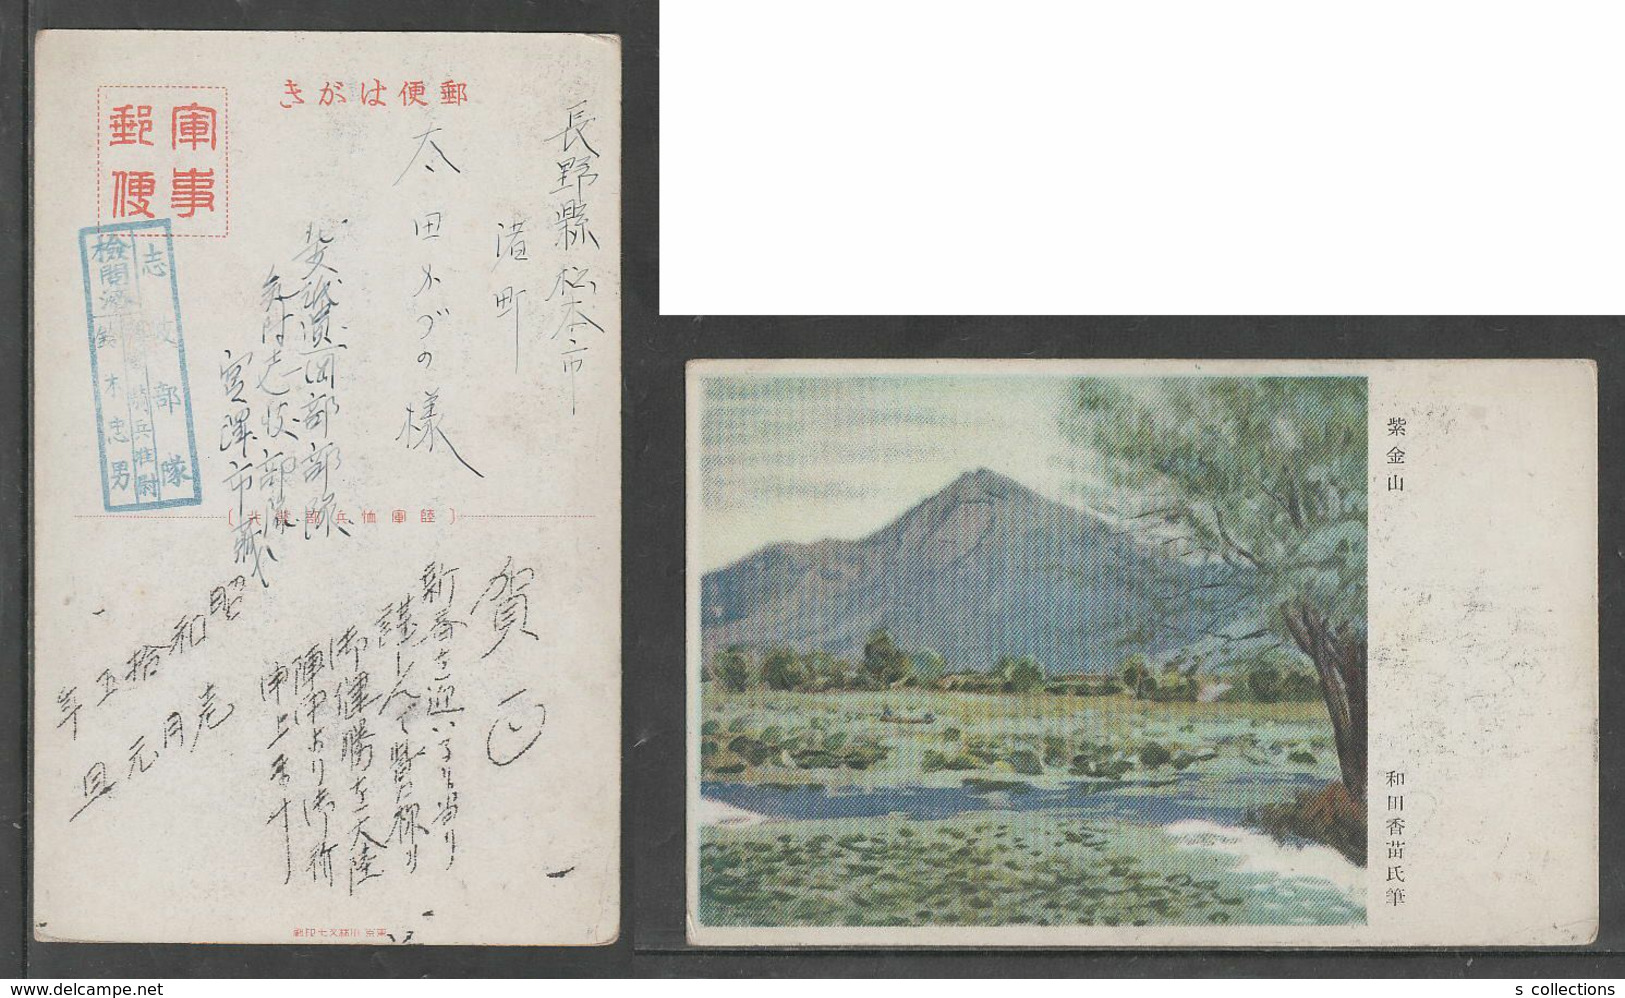 郵便はがき
軍事
郵便
長野縣松本市
渚町
太田かづの様
北支派遣岡部部隊
気付志波部隊
宮澤市蔵
志波部隊
検閲済
鈴木忠男
〔陸軍恤兵部発行〕
賀正
新春を迎へるに当り
謹しんで皆々様の
御健勝を大陸
陣中より御祈
申上ます
昭和拾五年
壱月元旦
紫金山
和田香苗氏筆
s collections
www.delcampe.net